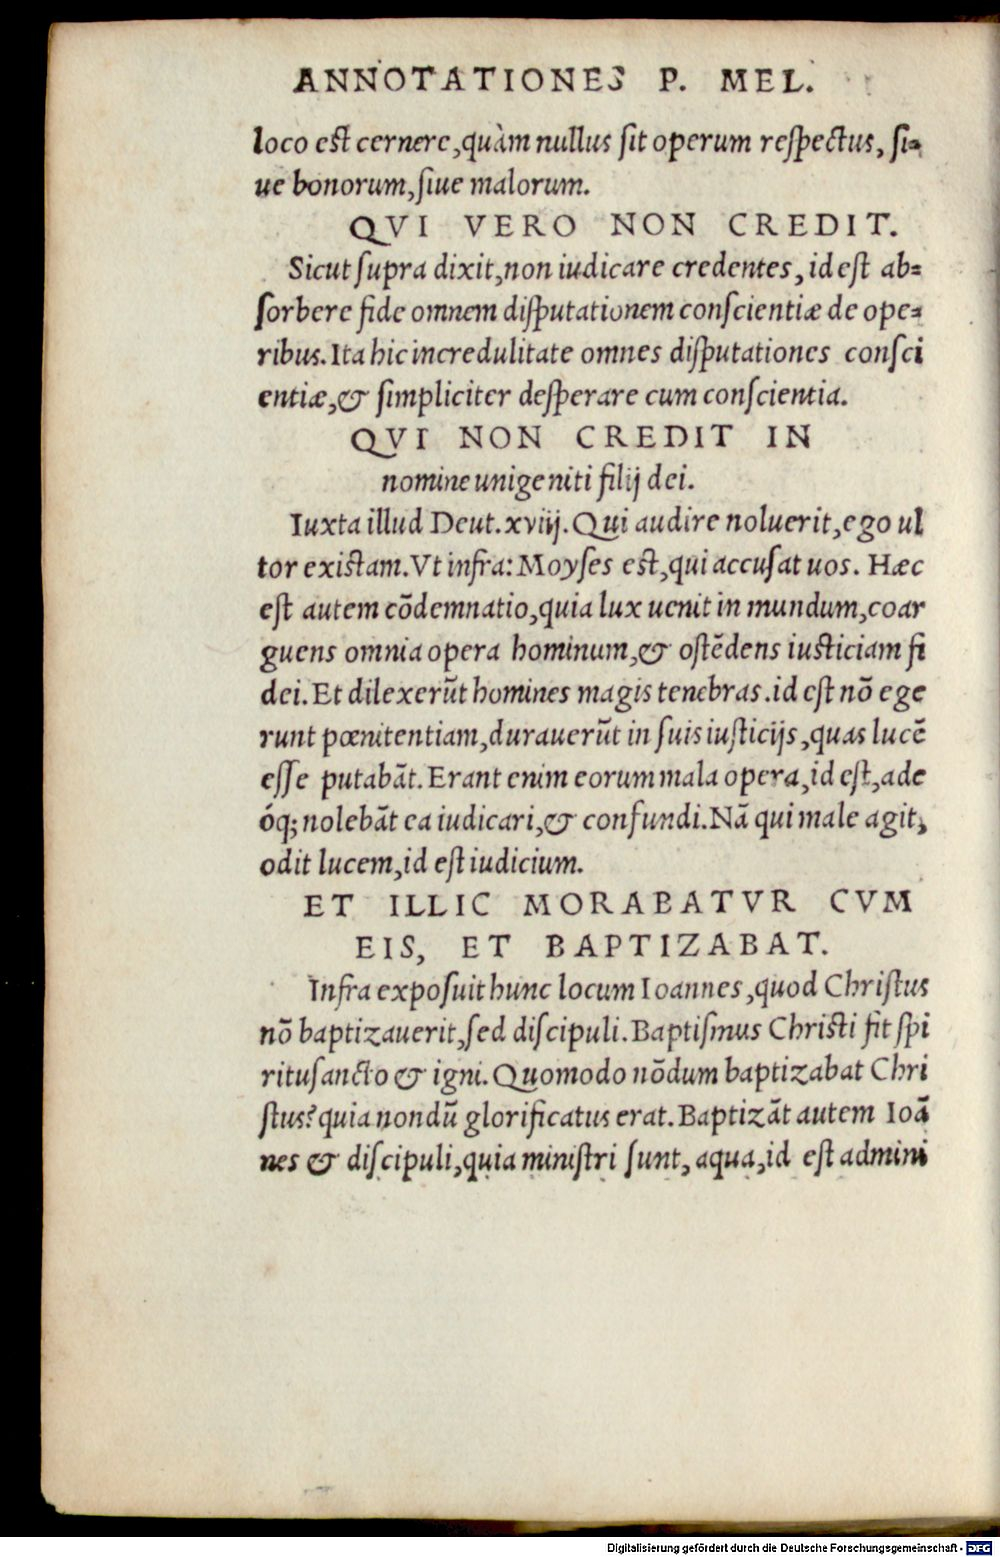 ANNOTATIONES P. MEL.
loco est cernere,quàm nullus sit operum respectus, si-
ue bonorum,siue malorum.
QVI VERO NON CREDIT.
Sicut supra dixit,non iudicare credentes, id est ab-
sorbere fide omnem disputationem conscientiæ de ope-
ribus. Ita hic incredulitate omnes disputationes consci
entiæ,& simpliciter desperare cum conscientia.
QVI NON CREDIT IN
nomine unigeniti filij dei.
Iuxta illud Deut.xviij.Qui audire noluerit,ego ul
tor existam.Vt infra: Moyses est,qui accusat uos. Hæc
est autem cõdemnatio,quia lux uenit in mundum,coar
guens omnia opera hominum,& ostẽdens iusticiam fi
dei. Et dilexerũt homines magis tenebras.id est nõ ege
runt pœnitentiam,durauerũt in suis iusticijs,quas lucẽ
esse putabãt. Erant enim eorum mala opera,id est,ade
óq; nolebãt ea iudicari,& confundi.Nã qui male agit,
odit lucem,id est iudicium.
ET ILLIC MORABATVR CVM
EIS, ET BAPTIZABAT.
Infra exposuit hunc locum Ioannes,quod Christus
nõ baptizauerit,sed discipuli. Baptismus Christi fit spi
ritusancto & igni. Quomodo nõdum baptizabat Chri
stus? quia nondũ glorificatus erat. Baptizãt autem Ioã
nes & discipuli,quia ministri sunt, aqua,id est admini
Digitalisierung gefördert durch die Deutsche Forschungsgemeinschaft - DFG